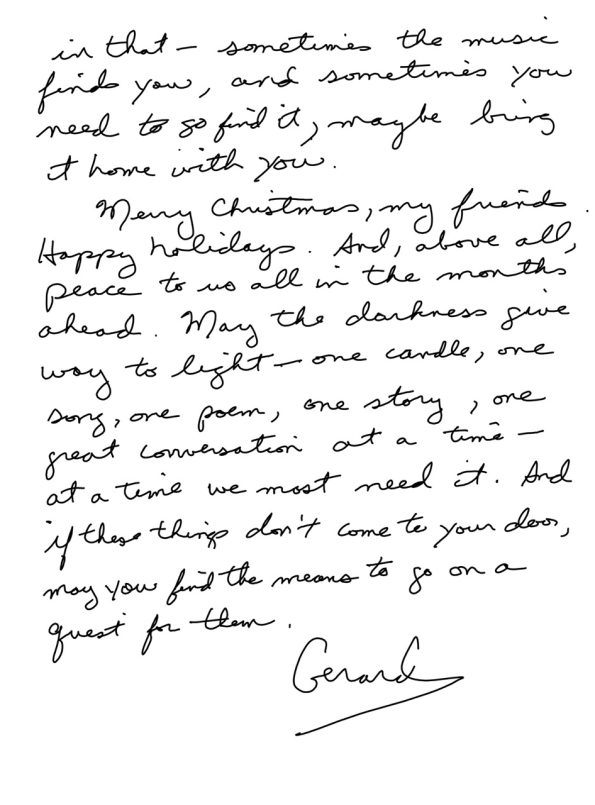 in that — sometimes the music
finds you, and sometimes you
need to go find it, maybe bring
it home with you.
Merry Christmas, my friends.
Happy holidays. And, above all,
peace to us all in the months
ahead. May the darkness give
way to light — one candle, one
song, one poem, one story, one
great conversation at a time —
at a time we most need it. And
if these things don't come to your door,
may you find the means to go on a
quest for them.
Gerard